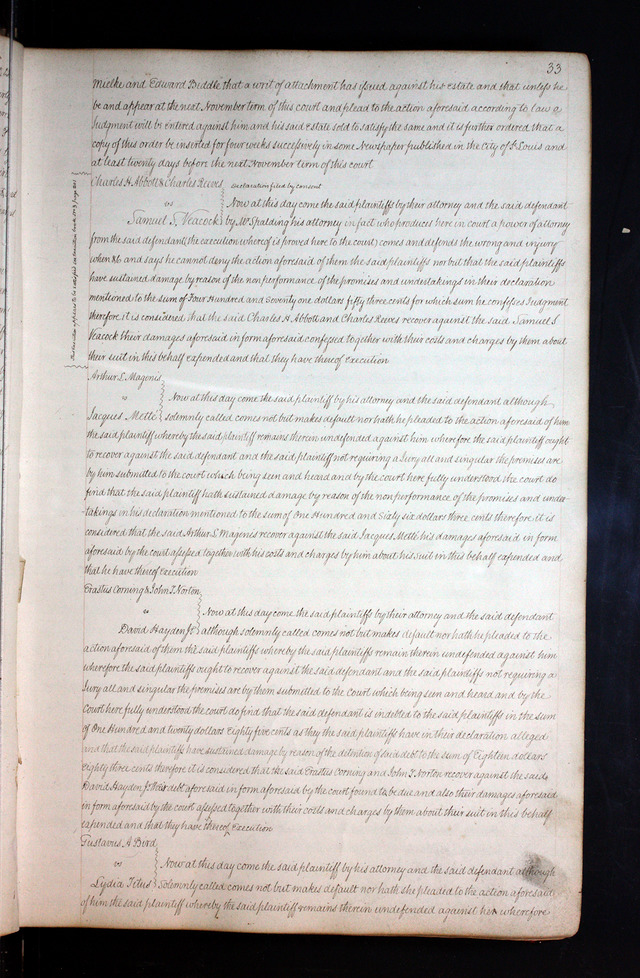 33
mielke and "Edward Biddle" that a writ of attachment has issued against his estate and that unless he
be and appear at the next November term of this court and plead to the action aforesaid according to law a
Judgment will be entered against him and his said estate sold to satisfy the same and it is further ordered that a
copy of this order be inserted for four weeks successively in some Newspaper published in the City of St Louis and
at least twenty days before the next November term of this court
Charles H. Abbott & Charles Reeves
vs
Samuel S. Veacock
declaration filed by consent
Now at this day come the said plaintiffs by their attorney and the said defendant
by Mr Spalding his attorney in fact who produces here in court a power of attorney
from the said defendant (the execution whereof is proved here to the court) comes and defends the wrong and injury
when &c and says he cannot deny the action aforesaid of them the said plaintiffs nor but that the said plaintiffs
have sustained damage by reason of the non performance of the promises and undertakings in their declaration
mentioned to the sum of Four Hundred and Seventy one dollars fifty three cents for which sum he confesses Judgment
therefore it is considered that the said Charles H. Abbott and Charles Reeves recover against the said Samuel S.
Veacock their damages aforesaid in form aforesaid confessed together with their costs and charges by them about
their suit in this behalf expended and that they have thereof execution
Arthur L. Magenis
vs
Jacques Metté
Now at this day come the said plaintiff by his attorney and the said defendant although
solemnly called comes not but makes default nor hath he pleaded to the action aforesaid of him
the said plaintiff whereby the said plaintiff remains therein undefended against him wherefore the said plaintiff ought
to recover against the said defendant and the said plaintiff not requiring a Jury all and singular the premises are
by him submitted to the court which being seen and heard and by the court here fully understood the court do
find that the said plaintiff hath sustained damage by reason of the non performance of the promises and under-
takings in his declaration mentioned to the sum of One Hundred and Sixty six dollars three cents therefore it is
considered that the said Arthur L. Magenis recover against the said Jacques Metté his damages aforesaid in form
aforesaid by the court assessed together with his costs and charges by him about his suit in this behalf expended and
that he have thereof execution
Erastus Corning & John T. Norton
vs
David Hayden Jr
Now at this day come the said plaintiffs by their attorney and the said defendant
although solemnly called comes not but makes default nor hath he pleaded to the
action aforesaid of them the said plaintiffs whereby the said plaintiffs remain therein undefended against him
wherefore the said plaintiffs ought to recover against the said defendant and the said plaintiffs not requiring a
Jury all and singular the premises are by them submitted to the Court which being seen and heard and by the
Court here fully understood the court do find that the said defendant is indebted to the said plaintiffs in the sum
of One Hundred and twenty dollars Eighty five cents as they the said plaintiffs have in their declaration alleged
and that the said plaintiffs have sustained damage by reason of the detention of said debt to the sum of Eighteen dollars
eighty three cents therefore it is considered that the said Erastus Corning and John T. Norton recover against the said
David Hayden Jr their debt aforesaid in form aforesaid by the court found to be due and also their damages aforesaid
in form aforesaid by the court assessed together with their costs and charges by them about their suit in this behalf
expended and that they have thereof Execution
Gustavus A Bird
vs
Lydia Titus
Now at this day come the said plaintiff by his attorney and the said defendant although
Solemnly called comes not but makes default nor hath she pleaded to the action aforesaid
of him the said plaintiff whereby the said plaintiff remains therein undefended against her wherefore